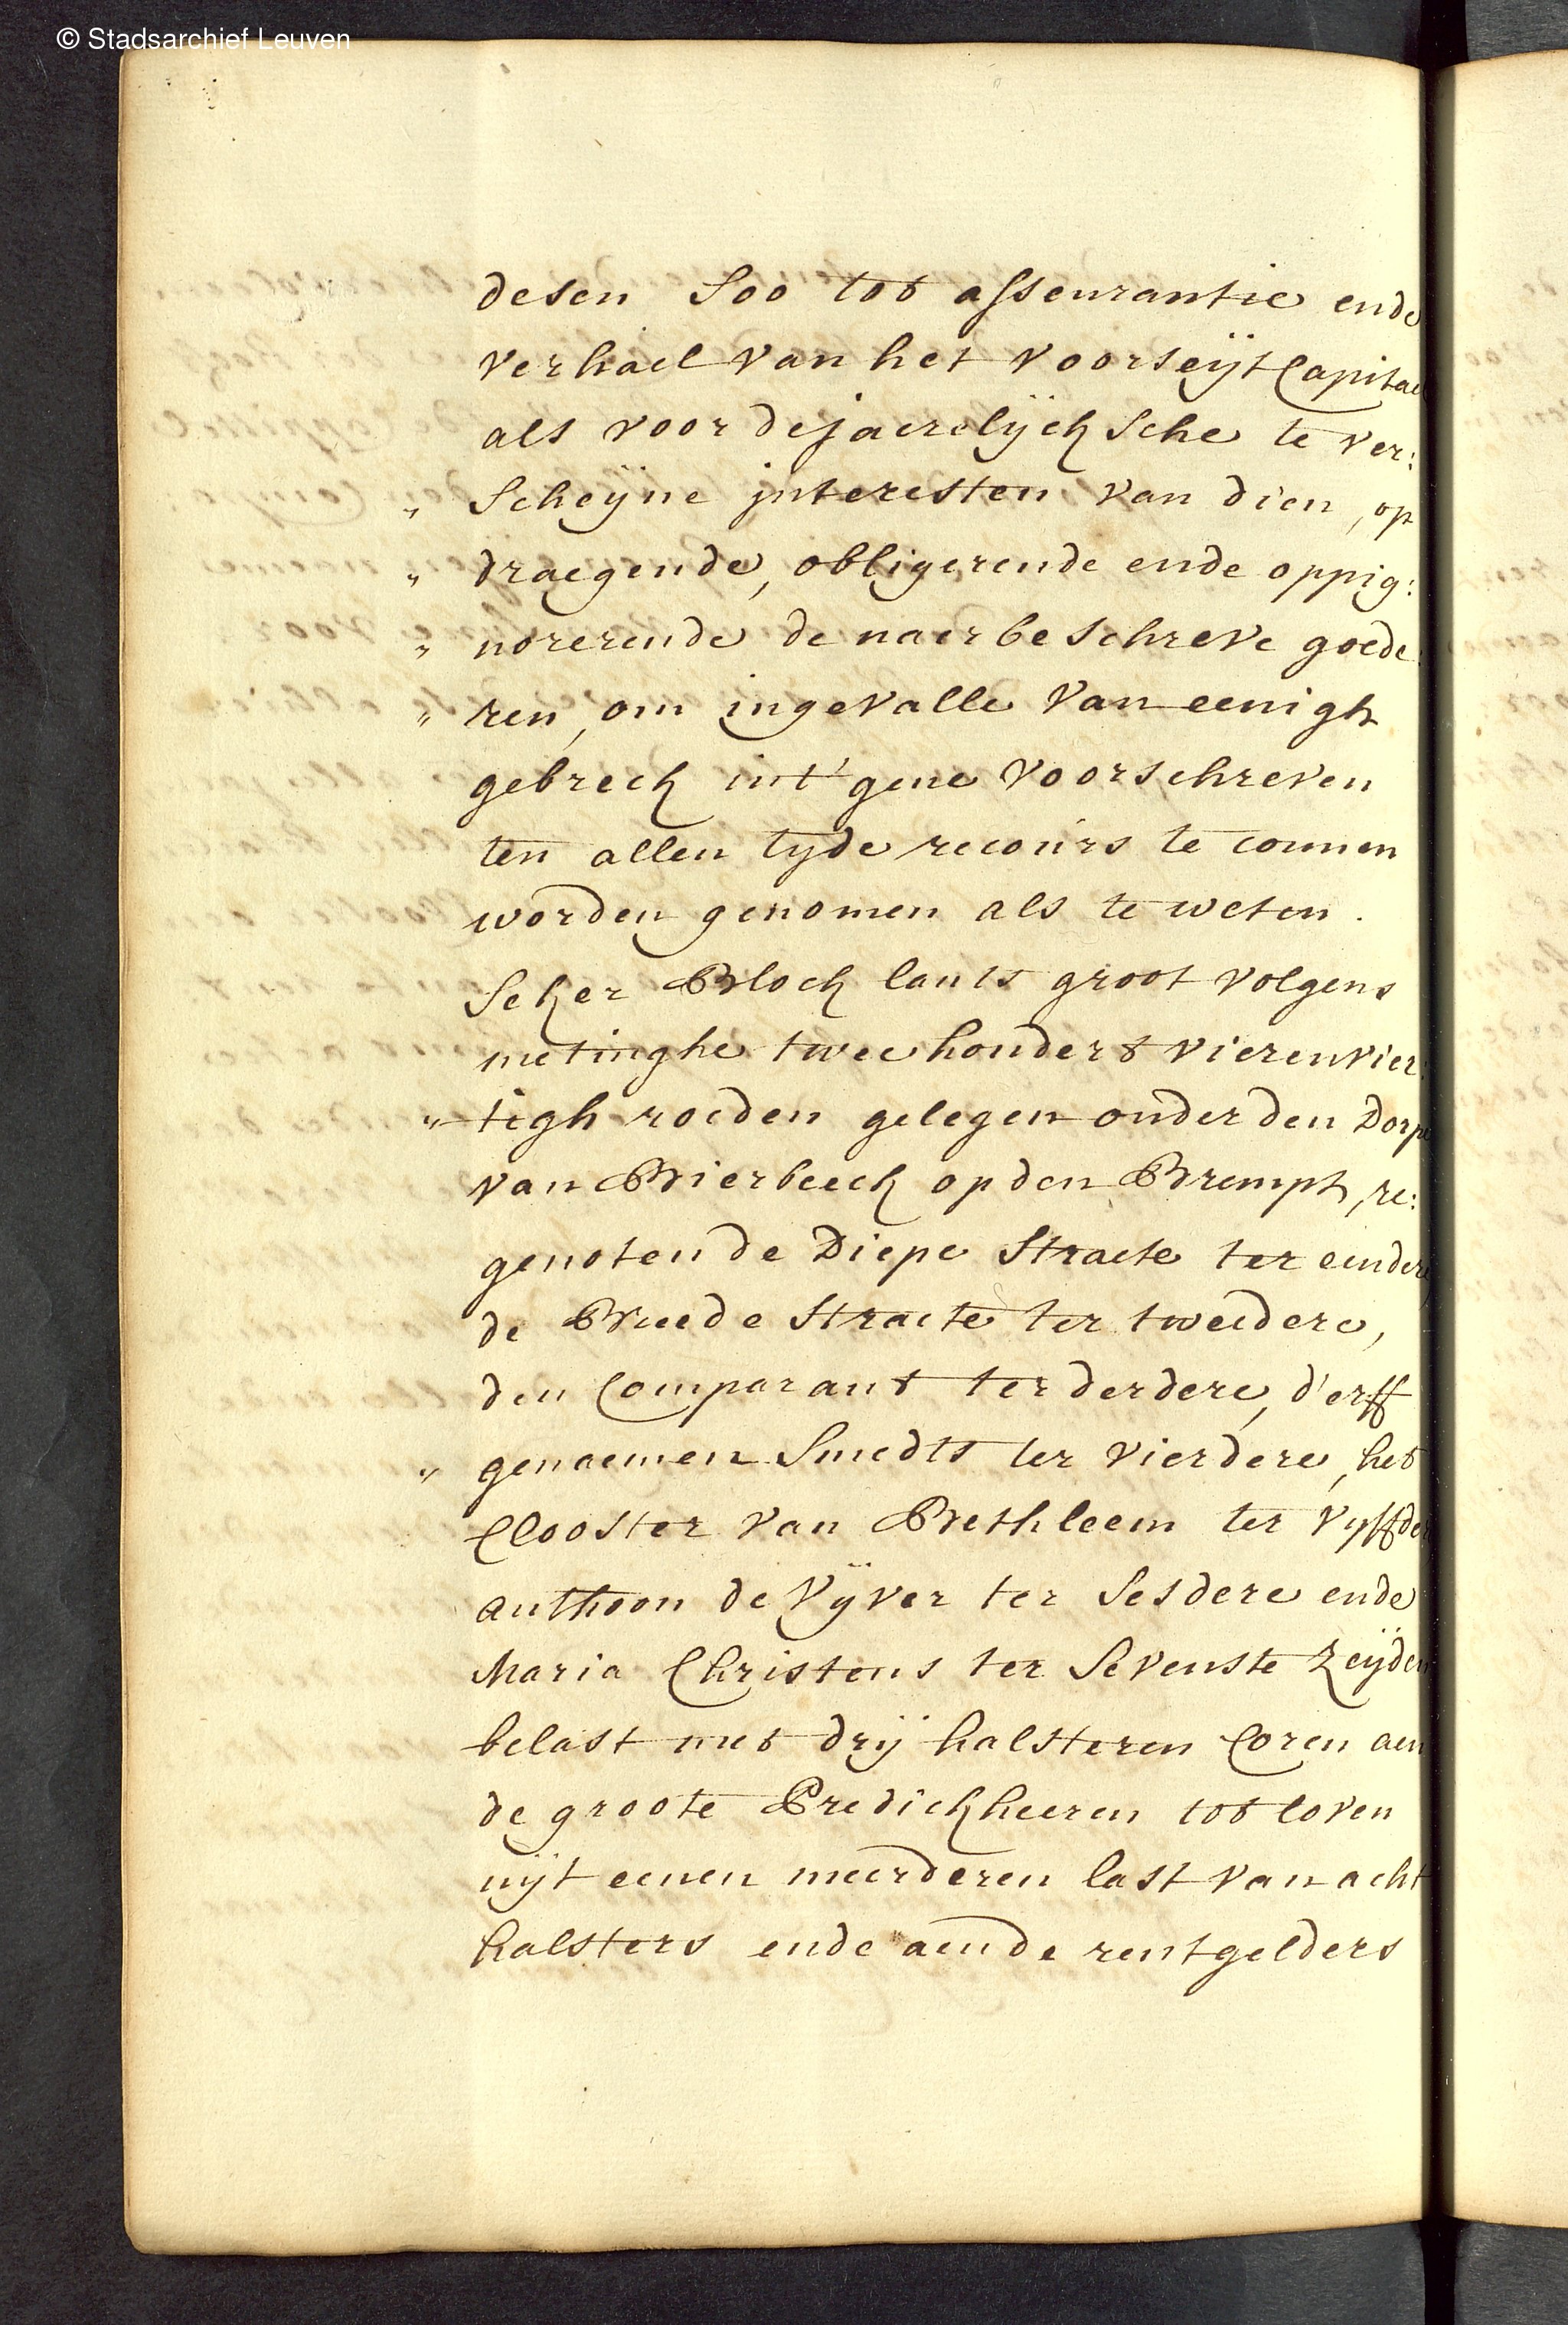 © Stadsarchief Leuven
desen Soo tot assurantie ende
verhael van het voorseijt Capitael
als voor dejaerelijck sche te ver:
„ Scheijne jnteresten van dien, op
„ draegende, obligerende ende oppig:
„ norerende de naerbeschreve goede:
„ ren, om ingevalle van eenigh
gebreck int'gene voorschreven
ten allen tyde recours te connen
worden genomen als te weten.
Seker Block lants groot volgens
metinghe twee hondert vierenvier:
„ tigh roeden gelegen onder den Dorpe
van Bierbeeck op den Brempt, re:
genoten de Diepe Straete ter eendere
de Breede Straete ter tweedere,
den Comparant ter derdere, d'erff
„ genaemen Smedts ter vierdere, het
Clooster van Bethleem ter vyffdere
anthoon de Vijver ter Sesdere ende
Maria Christens ter Sevenste Zeijden
belast met drij halsteren Coren aen
de groote Predickheeren tot loven
uijt eenen meerderen last van acht
halsters ende aende rentgelders